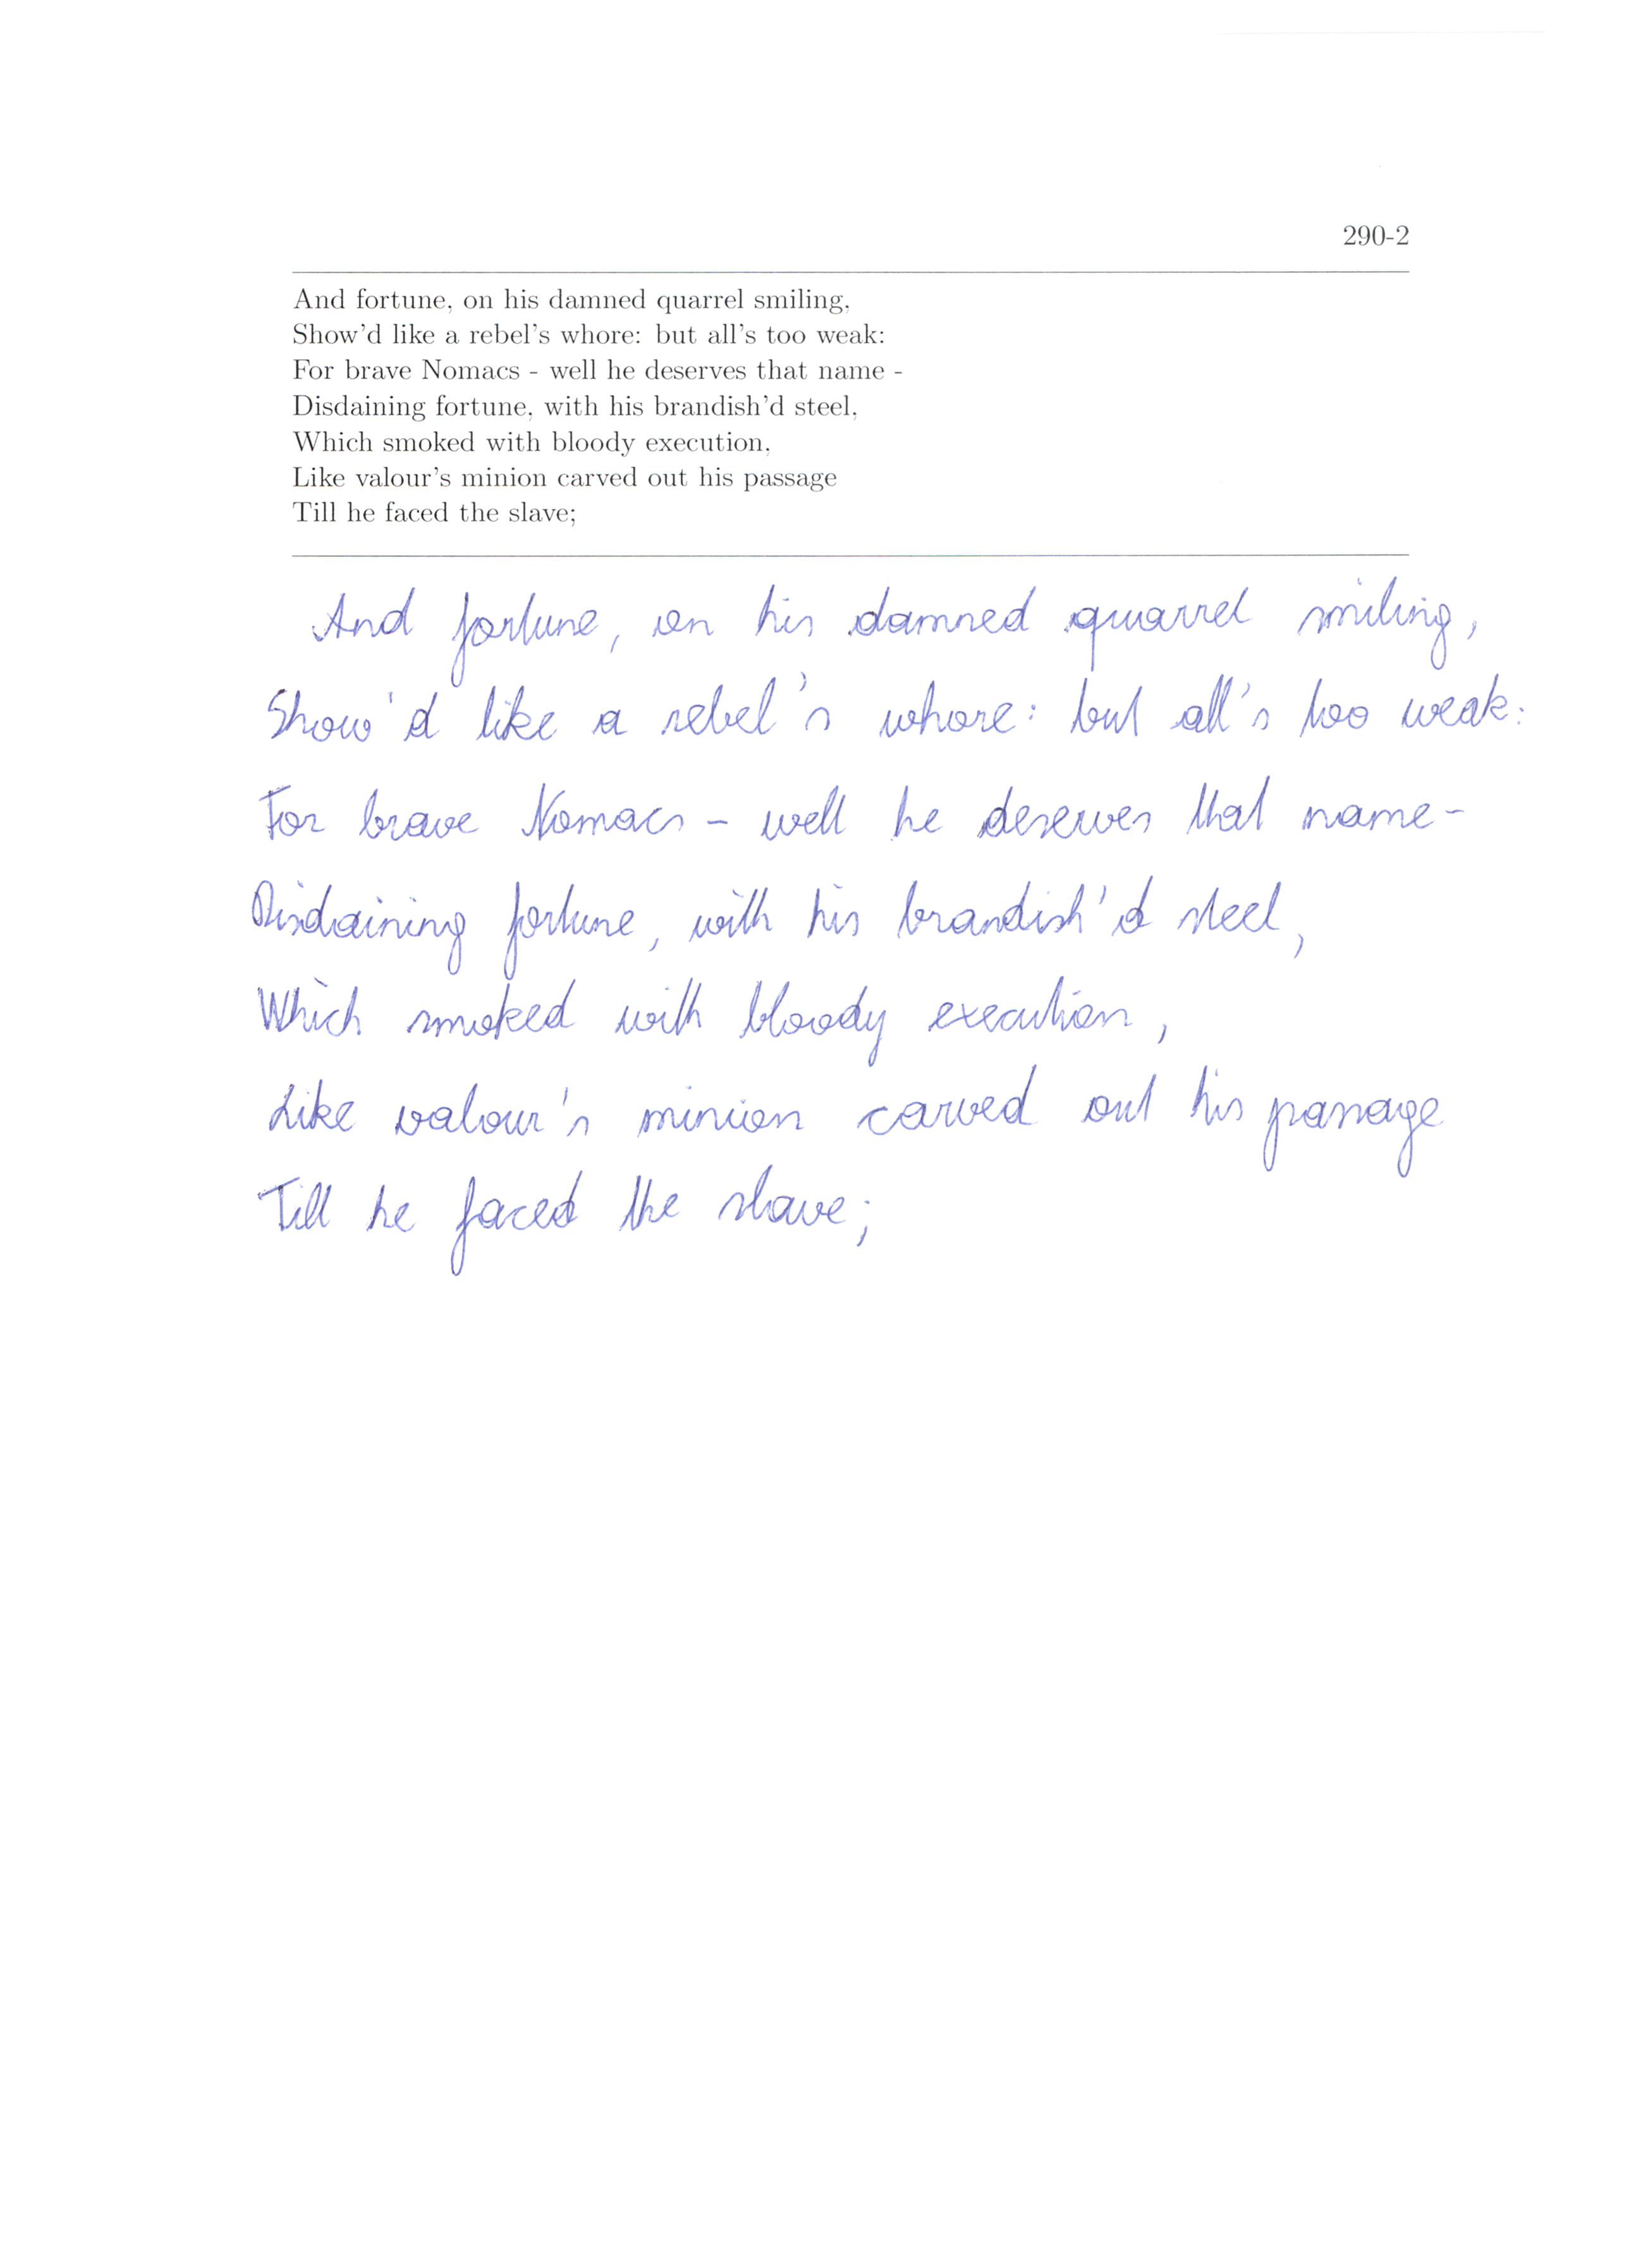 290-2
And fortune, on his damned quarrel smiling,
Show'd like a rebel's whore: but all's too weak:
For brave Nomacs - well he deserves that name -
Disdaining fortune, with his brandish'd steel,
Which smoked with bloody execution,
Like valour's minion carved out his passage
Till he faced the slave;
And fortune, on his damned quarrel smiling,
Show'd like a rebel's whore: but all's too weak:
For brave Nomacs - well he deserves that name -
Disdaining fortune, with his brandish'd steel,
Which smoked with bloody execution,
Like valour's minion carved out his passage
Till he faced the slave;